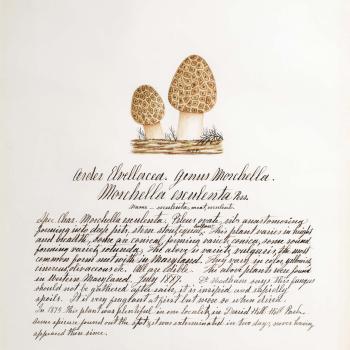 Order Elvellacea. Genus Morchella.
Morchella esculenta Pers.
Name - esculenta, meat, succulent.
Spec. Char. Morchella esculenta. Pileus ovate, ribs anastomosing
forming into deep pits, stem stout, hollow. This plant varies in height
and breadth, some are conical, forming variety conica, some round
forming variety rotunda. The above is variety vulgaris, the most
common form met with in Maryland. They vary in color, yellowish,
cinereous, olivaceous &c. All are edible. The above plants were found
in Western Maryland. July 1887. D. Badham says this fungus
should not be gathered after rains, it is insipid and rapidly
spoils. It is very fragrant at first but more so when dried.
In 1879 this plant was plentiful in one locality in Druid Hill Park.
Some species found out the spot, it was exterminated in two days, never having
appeared there since.